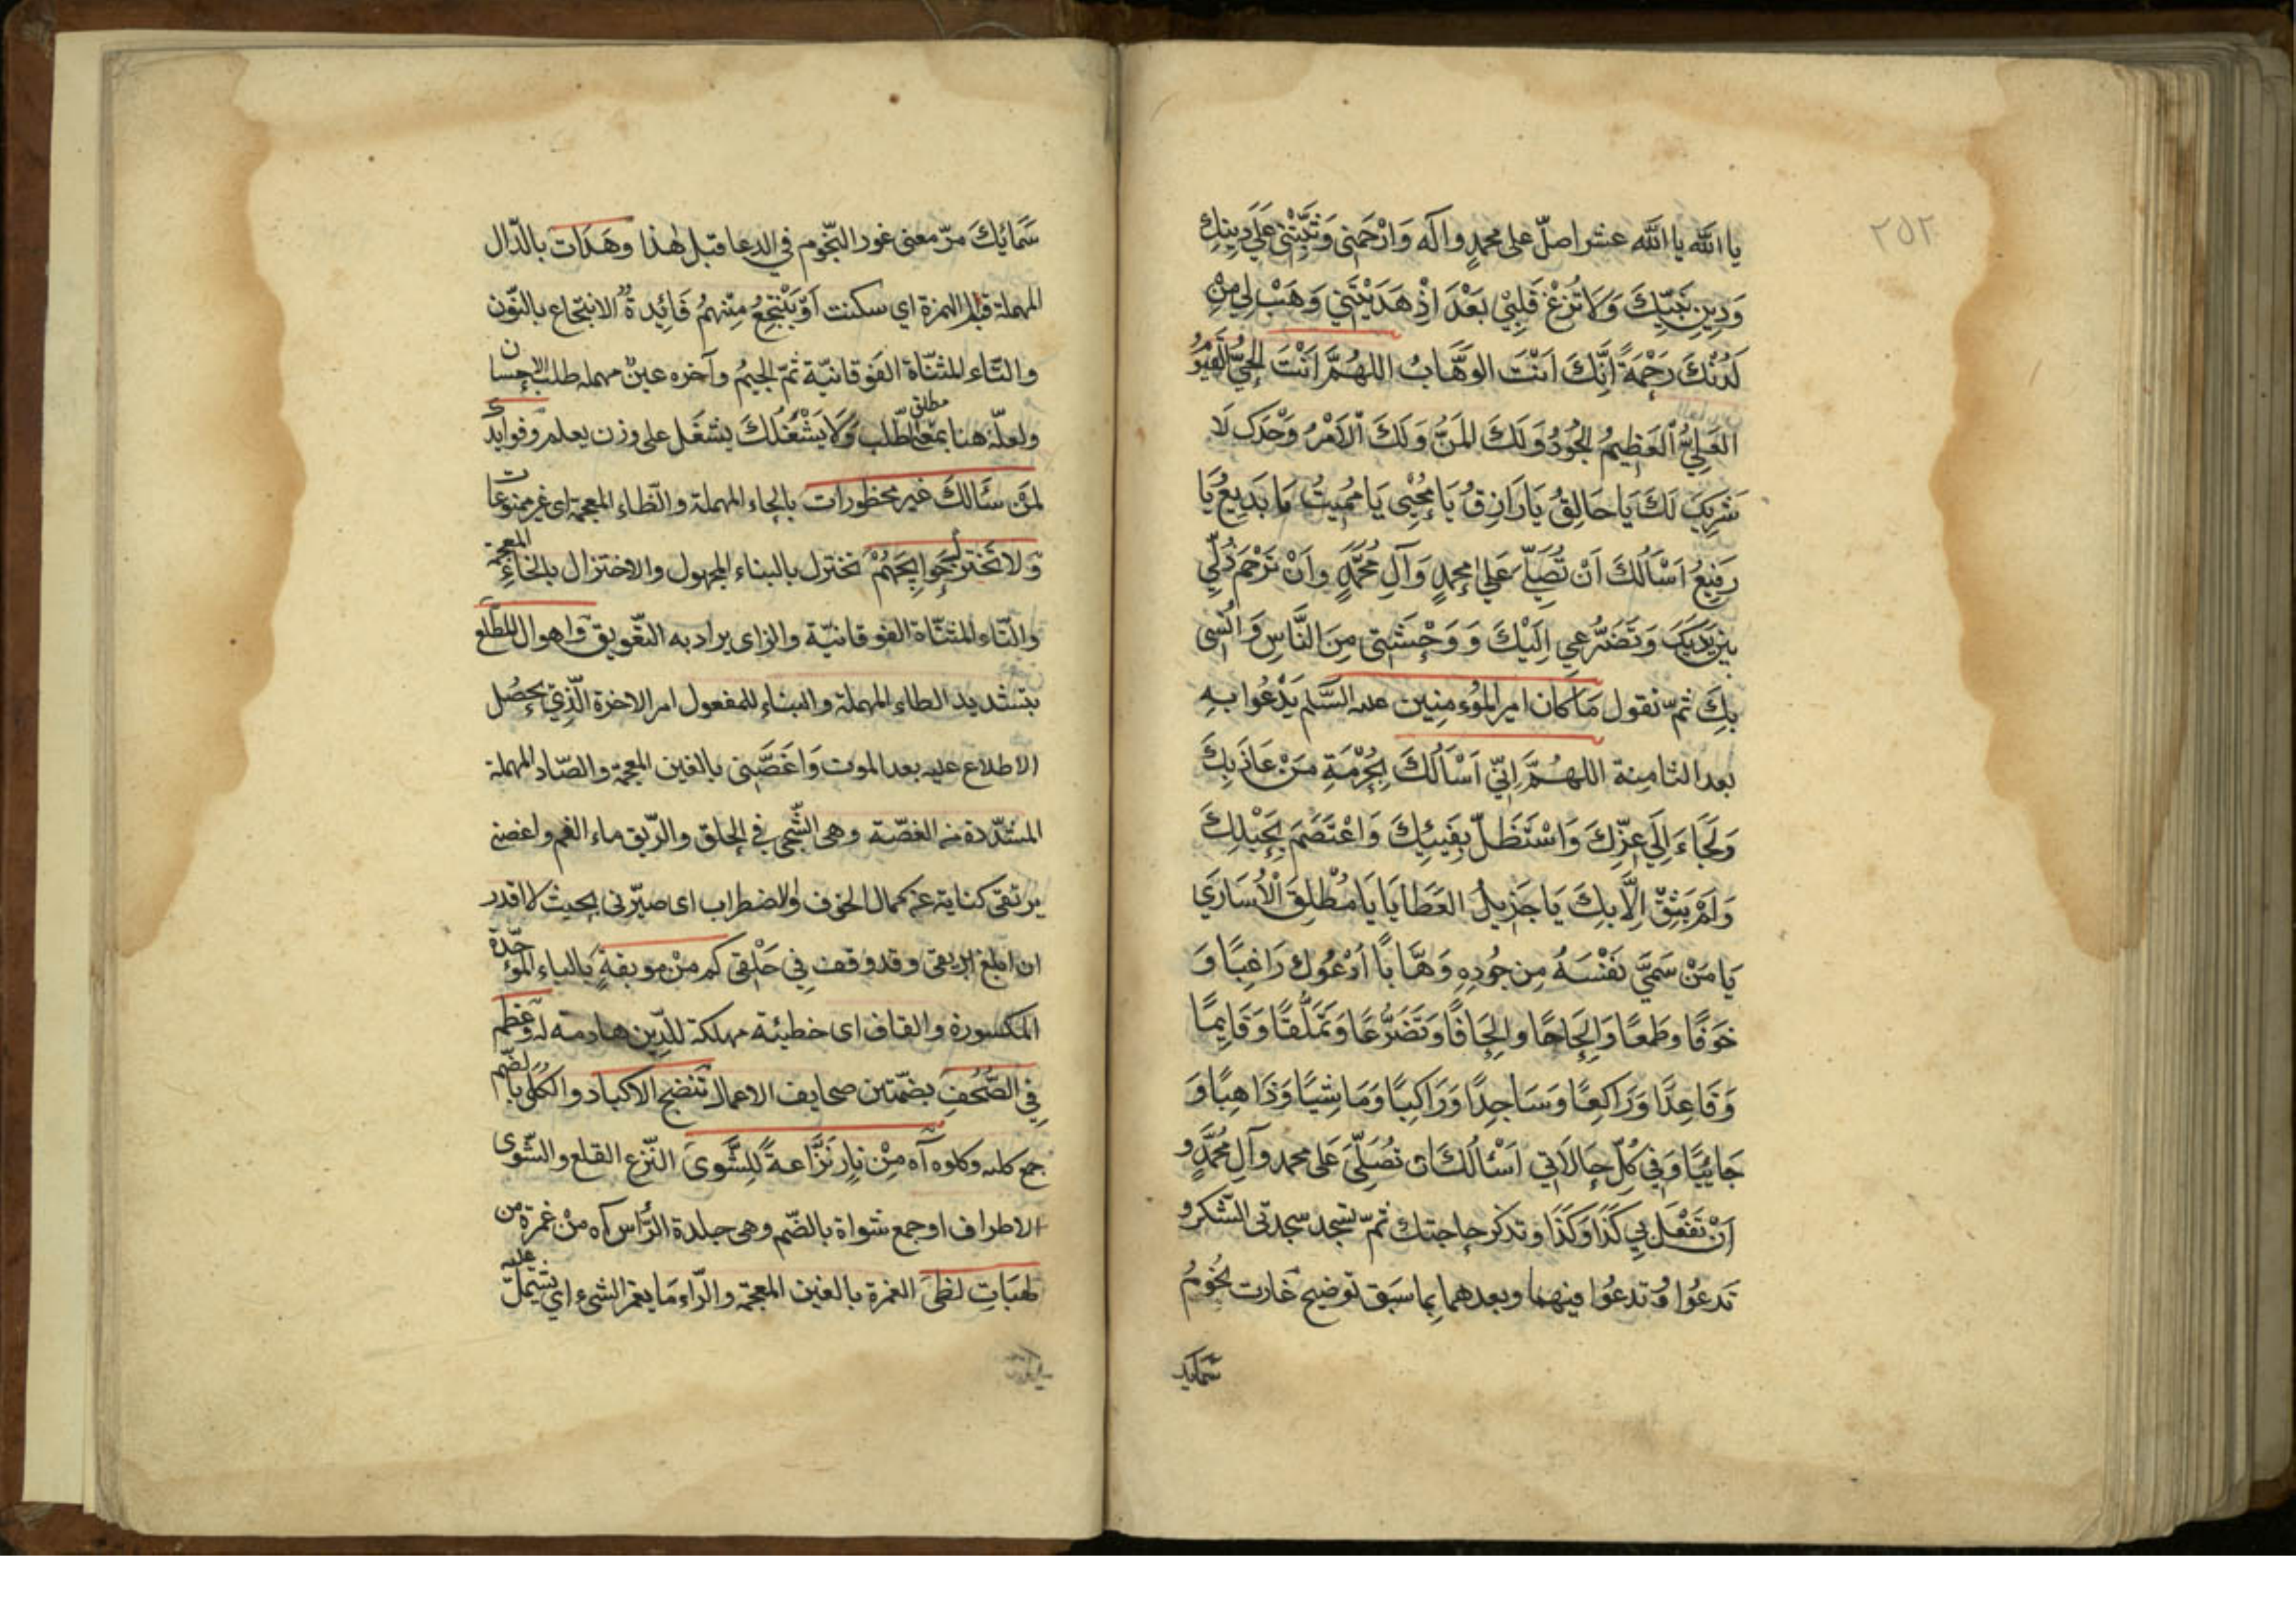 ٢٥٢
يا الله يا الله عشرا صلّ على محمدٍ وآله وَارْحَمنى وَثَبِّتْنى عَلَى دِينِكَ
وَدِينِ نَبِيِّكَ وَلَا تُزِغْ قَلْبِي بَعْدَ اِذْ هَدَيْتَنِي وَهَبْ لِى مِنْ
لَدُنْكَ رَحْمَةً اِنَّكَ اَنْتَ الوَهَّابُ اللهُمَّ اَنْتَ الحَيُّ القَيُّو
العَلِيُّ العَظِيمُ الجُودُ وَلَكَ المَنُّ وَلَكَ الْاَمْرُ وَحْدَكَ لَا
شَرِيكَ لَكَ يَا خَالِقُ يَا رَازِقُ يَا مُحْيِى يَا مُمِيتُ يَا بَدِيعُ يَا
رَفِيعُ اَسْاَلُكَ اَنْ تُصَلِّىَ عَلى محمدٍ وَآلِ مُحَمَّدٍ وَاَنْ تَرْحَمَ ذُلِّي
بين يَدَيكَ وَتَضَرُّعِي اِلَيْكَ وَ وَحْشَتِى مِنَ النَّاسِ وَ اُنْسِى
بِكَ ثمّ تقول مَا كَان امير المُؤمِنِين عليه السَّلم يَدْعُوا بِهِ
بعد الثامِنِة اللهُمَّ اِنّي اَسْاَلُكَ بِحُرْمَةِ مَنْ عَاذَ بِكَ
وَلَجَاءَ اِلَي عِزِّكَ وَاسْتَظَلّ بِفَيئِكَ وَاعْتَصَمَ بِحَبْلِكَ
وَلَمْ يَثِقْ اِلَّا بِكَ يَا جَزِيلَ العَطَايَا يَا مُطْلِقَ الْاُسَارَي
يَا مَنْ سَمَّيَ نَفْسَهُ مِن جُودِهِ وَهَّابًا اَدْعُوكَ رَاغِبًا وَ
خَوفًا وطَمعًا وَالحَاحًا والحَافًا وَتَضَرُّعًا وَتَمَلُّقًا وَقَايِمًا
وَقَاعِدًا وَرَاكِعًا وَسَاجِدًا وَرَاكِبًا وَمَاشِيًا وَذَاهِبًا وَ
جَائِيًا وَفِي كُلِّ حَالَاتِي اَسْئالُكَ اَن تُصَلِّىَ عَلى محمد وآلِ مُحَمَّدٍ وَ
اَنْ تَفْعَلَ بِي كَذَا وَكَذَا وتذكر حاجتك ثمّ تسجد سجدتى الشكر و
تَدعُوا وتدعُوا فيهما وبعدهما بِما سَبَق توضيح غارت نُجُومُ
سَمَايِكَ
سَمَائِكَ مرّ معنى غور النجّوم في الدعا قبل هٰذا وهَدَاَت بالدّال
المهملة قبل الهمزة اي سكنت اَوْ يَنْتَجِعُ مِنْهُمْ فَائِدةً الانتجاع بالنّون
والتّاء المثنّاة الفوقانيّة ثمّ الجيمُ وآخره عينٌ مهمله طلب الاحسان
ولعلّه هنا بمعنى مطلق الطّلب وَلَا يَشْغَلُكَ يشغَل على وزن يعلم وفوايدك
لمَن سَئَالكَ غير محظورات بالحاء المهملة والظاء المعجمة اى غير ممنوعات
وَلا تَختزلُ حَوايِجَهُمْ تختزل بالبناء المجهول والاختزال بالخَاءِ المعجمة
والتّاء المثنّاة الفوقانيّة والزاى يراد به التّعويق واهوال المطّلع
بتشديد الطاء المهملة والبناءِ للمفعول امر الاخرة الّذى يحصُل
الاطلاع عليه بعد الموت وَاغَصَّنى بالغين المعجمة والصّاد المهملة
المشدّدة من الغصّة وهى الشّجى في الحلق والرّيق ماء الفم واغصنى
بريقى كناية عن كمال الخوف والاضطراب اى صيّرنى بحيث لا اقدر
ان ابلغ ريقى وقد وقف فِي حَلْقى كم مِنْ موبقةٍ بالباء الموحّدة
المكسورة والقاف اى خطيئة مهلكة للدِّين هادمة له وعظم
فِي الصُّحُفِ بضمّتين صحايف الاعمال تَنضج الاكباد والكُلَى بالضّم
جمع كليه وكلوه آه مِنْ نَارٍ نَزَّاعةً لِلشَّوىَ النّزع القلع والشّوى
الاطراف او جمع شواة بالضّم وهى جلدة الرّأس آه مِنْ غمرةٍ من
لهَبَاتِ لظى الغمرة بالغين المعجمة والرّاء مَا يغمر الشىء اي يشتمل عليه